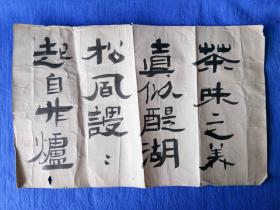 茶味之美
真似醍湖
松風謖〻
起自竹爐